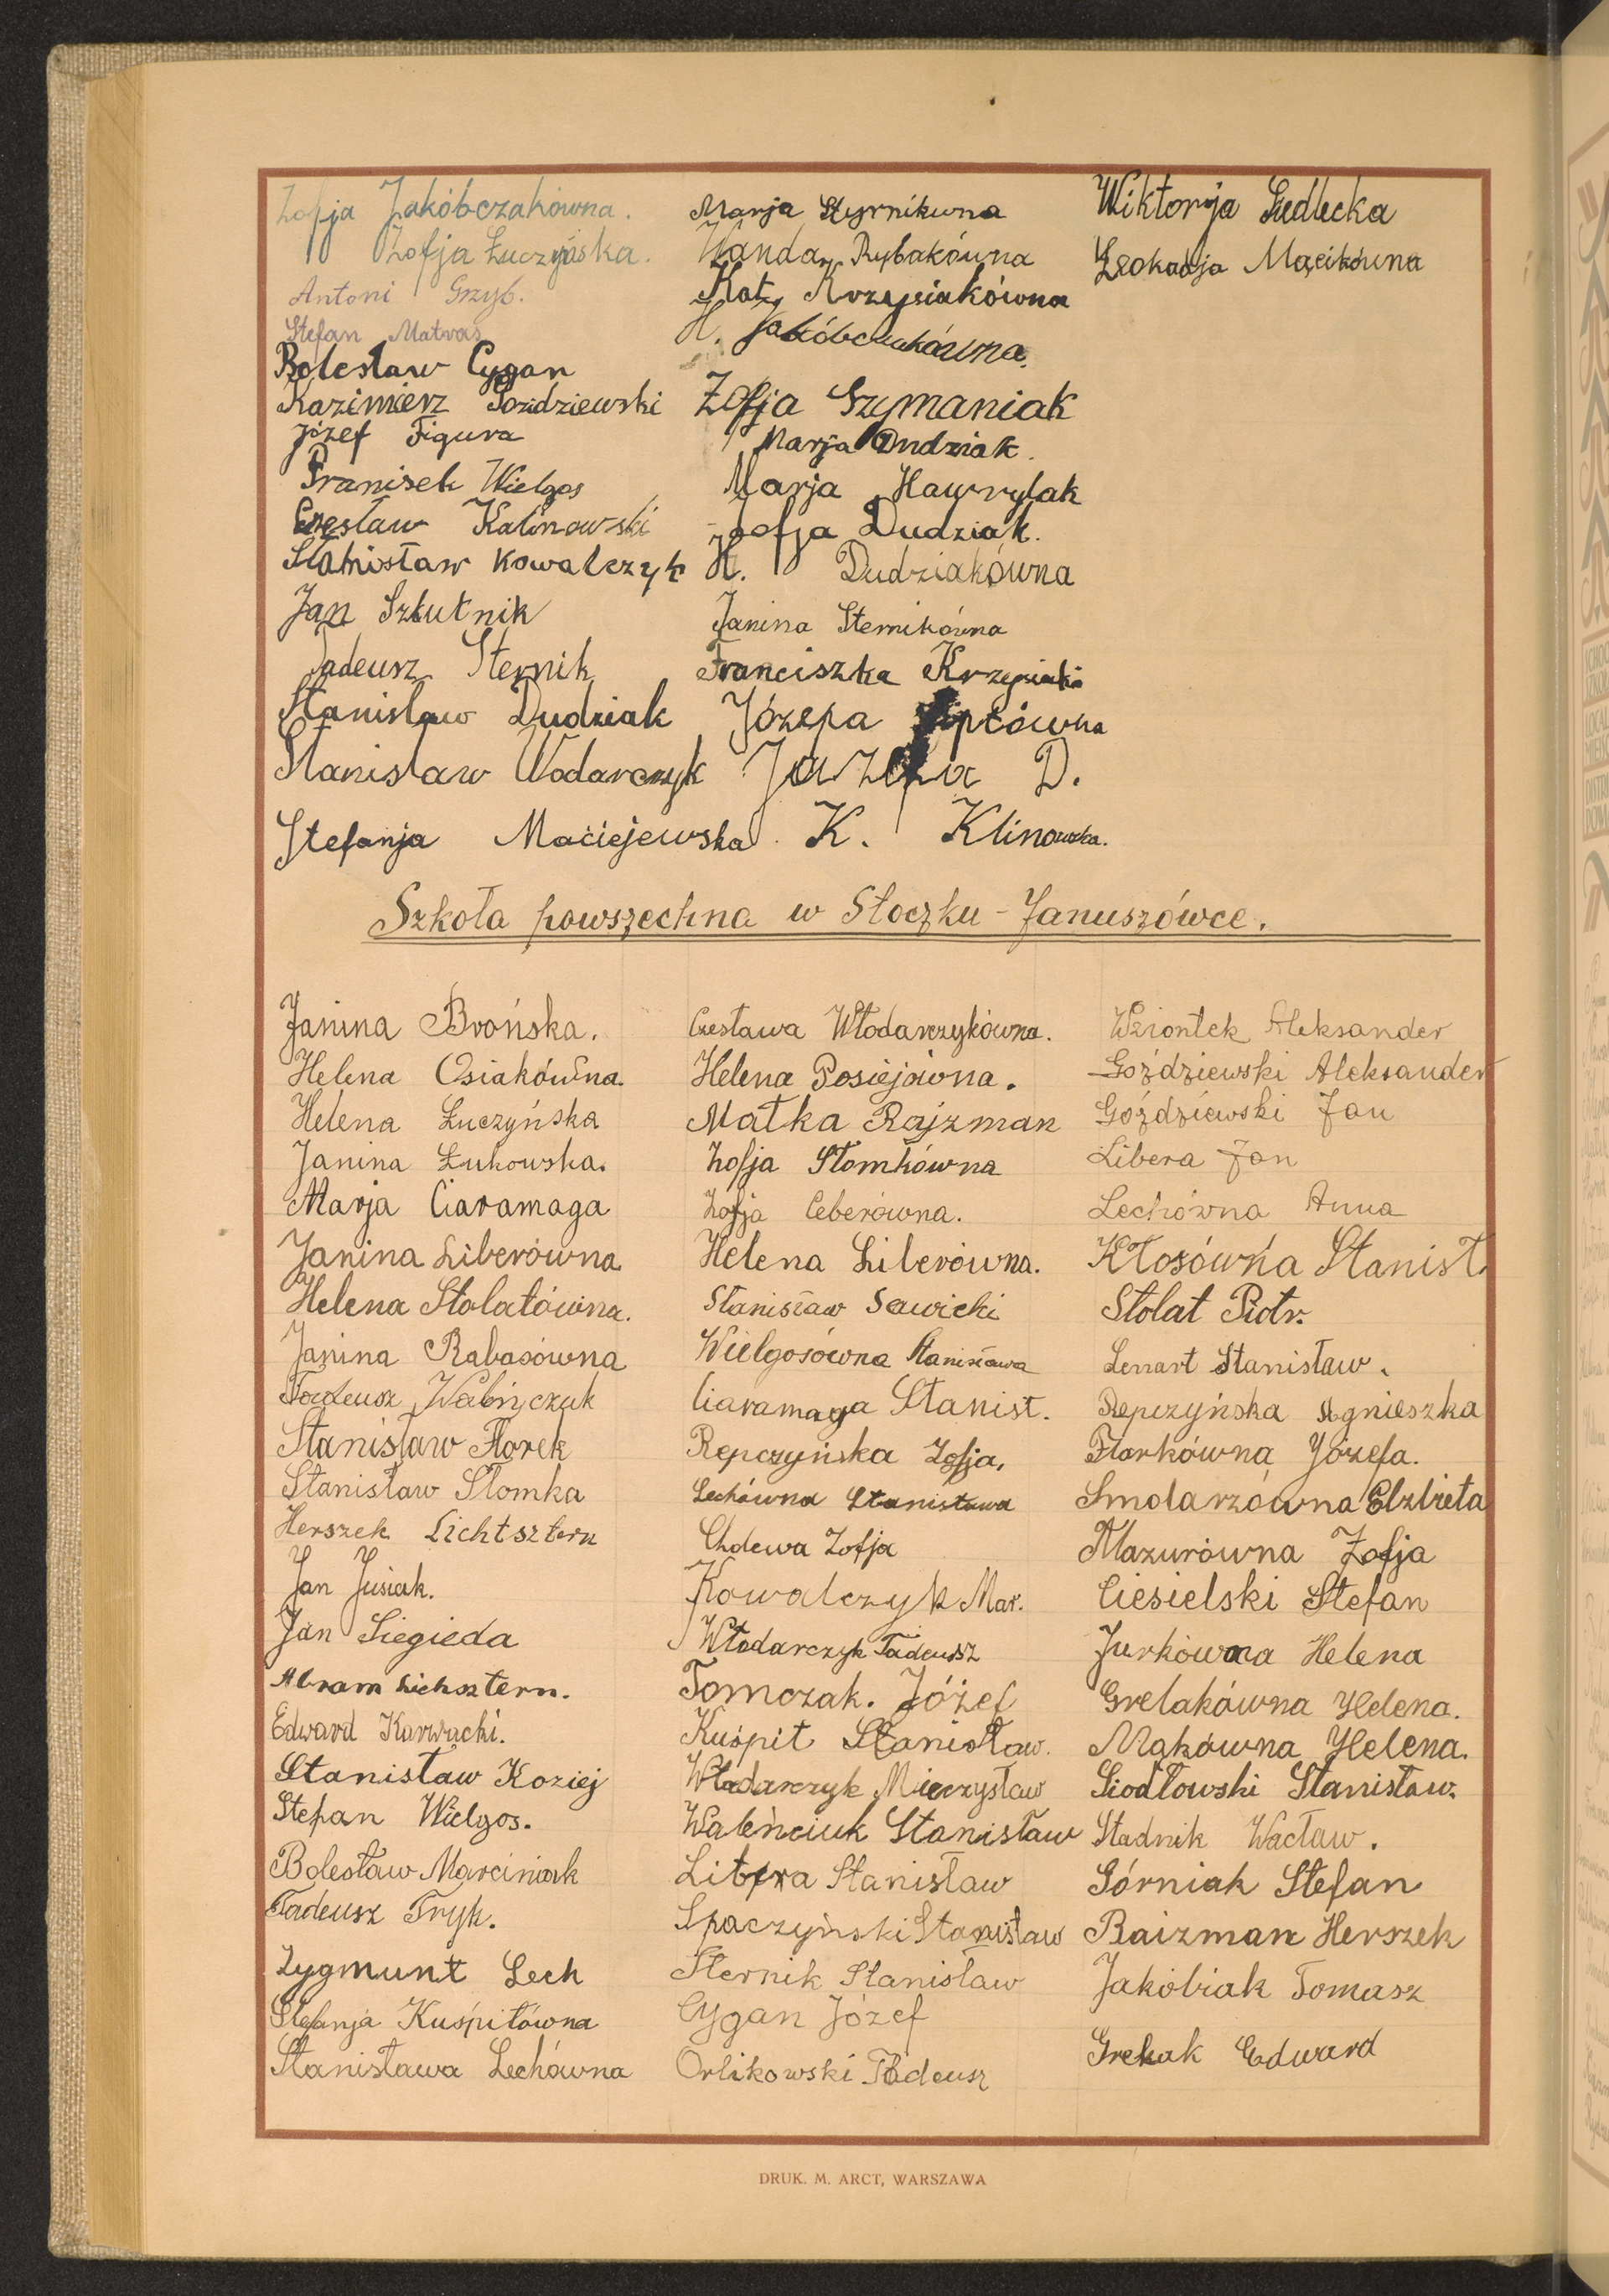 Zofja Jakóbczakówna.
Zofja Łuczyńska.
Antoni Grzyb.
Stefan Matras
Bolesław Cygan
Kazimierz Goździewski
Józef Figura
Franisek Wielgos
Czesław Kalinowski
Stanisław Kowalczyk
Jan Szkutnik
Tadeusz Sternik
Stanisław Dudziak
Stanisław Wodarczyk
Stefanja Maciejewska
Marja
Wanda Rybakówna
Kat. Krzysiakówna
H. Jakóbczakówna
Zofja Szymaniak
Marja Dudziak.
Marja Hawrylak
Zofja Dudziak.
H. Dudziakówna
Janina Sternikówna
Franciszka
Józefa
Józefa D.
K. Klinowska.
Wiktorja Siedlecka
Leokadja Mącikówna
Szkoła powszechna w Stoczku - Januszówce.
Janina Brońska.
Helena Osiakówna.
Helena Łuczyńska
Janina Łukowska.
Marja Ciaramaga
Janina Liberówna
Helena Stolatówna.
Janina Rabasówna
Tadeusz Walińczuk
Stanisław Florek
Stanisław Słomka
Herszek Lichtsztern
Jan Jusiak.
Jan Siegieda
Abram Lichsztern.
Edward Karwacki.
Stanisław Koziej
Stefan Wielgos.
Bolesław Marciniak
Tadeusz Fryk.
Zygmunt Lech
Stefanja Kuśpitówna
Stanisława Lechówna
Czesława Włodarczykówna.
Helena Posiejówna.
Małka Rajzman
Zofja Słomkówna
Zofja Ceberówna.
Helena Liberówna.
Stanisław Sawicki
Wielgosówna Stanisława
Ciaramaga Stanist.
Repczyńska Zofja,
Lechówna Stanisława
Chdewa Zofja
Kowalczyk Mar.
Włodarczyk Tadeusz
Tomczak. Józef
Kuśpit Stanisław.
Włodarczyk Mieczysław
Waleńciuk Stanisław
Libera Stanisław
Spaczyński Stanisław
Sternik Stanisław
Cygan Józef
Orlikowski Tadeusz
Wziontek Aleksander
Goździewski Aleksander
Goździewski Jan
Libera Jan
Lechówna Anna
Kłosówna Stanisł.
Stolat Piotr.
Lenart Stanisław.
Repczyńska Agnieszka
Florkówna Józefa.
Smolarzówna Elżbieta
Mazurówna Zofja
Ciesielski Stefan
Jurkówna Helena
Grelakówna Helena.
Mąkówna Helena.
Siodłowski Stanisław.
Stadnik Wacław.
Górniak Stefan
Raizman Herszek
Jakóbiak Tomasz
Grelak Edward
DRUK. M. ARCT, WARSZAWA